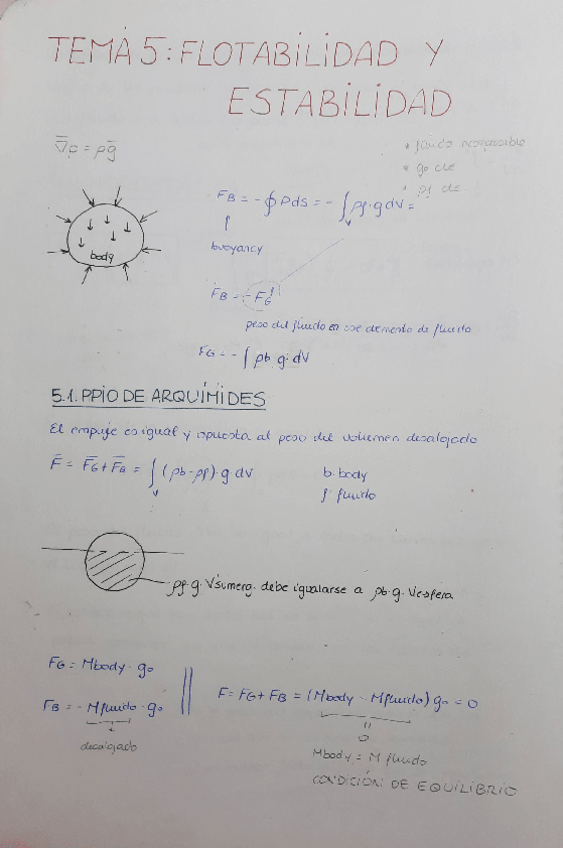 TEMA 5: FLOTABILIDAD Y
ESTABILIDAD
∇p = ρg
• fluido incompresible
• g₀ cte
• ρf cte
F_B = - ∮ P ds = - ∫_V ρf · g dV =
buoyancy
body
F_B = - F_G^f
peso del fluido en ese elemento de fluido
F_G = - ∫ ρb g · dV
5.1. PPIO DE ARQUÍMIDES
El empuje es igual y opuesta al peso del volumen desalojado
F̄ = F̄_G + F̄_B = ∫_V (ρb - ρf) · g dV
b: body
f: fluido
ρf · g · Vsumerg. debe igualarse a ρb · g · Vesfera
F_G = Mbody · g₀
F_B = - Mfluido · g₀
desalojado
F = F_G + F_B = (Mbody - Mfluido) g₀ = 0
0
Mbody = M fluido
CONDICIÓN DE EQUILIBRIO